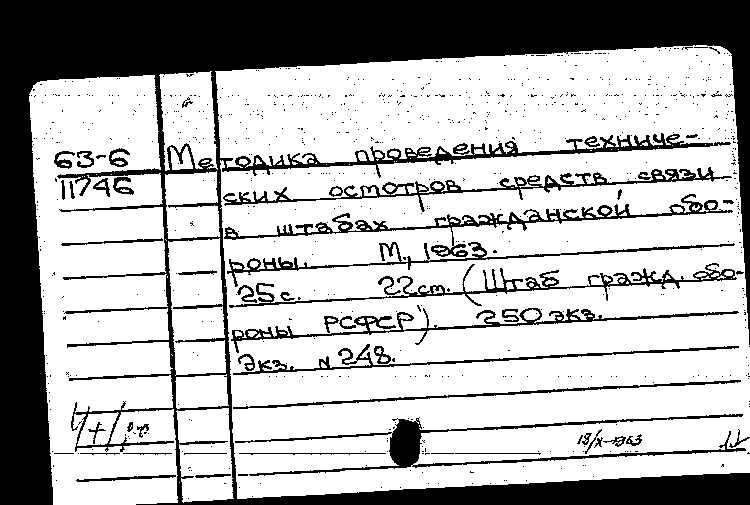 63-6
11746
Методика проведения техниче-
ских осмотров средств связи
в штабах гражданской обо-
роны. М., 1963.
25 с. 22 см. (Штаб гражд. обо-
роны РСФСР). 250 экз.
Экз. № 248.
18/X-1963